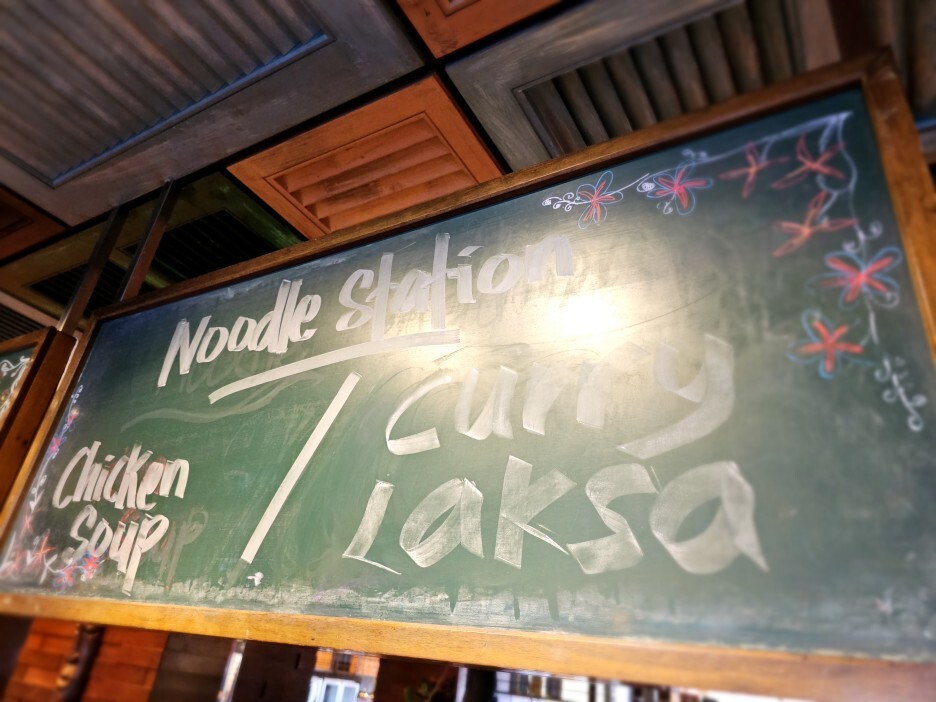 Noodle Station
Chicken
Soup
/
Curry
Laksa